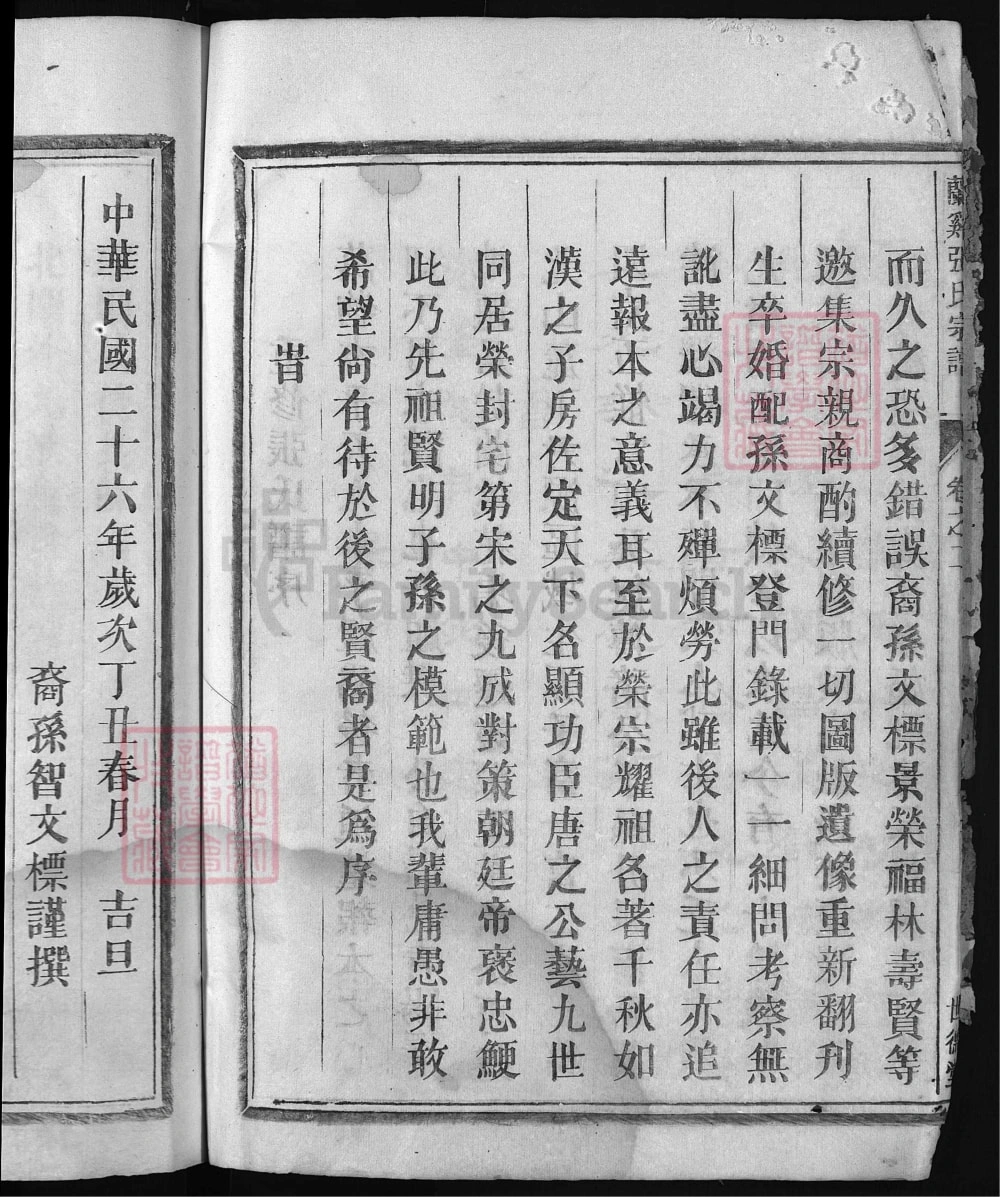 蘭谿張氏宗譜 卷之一 世德堂
而久之恐多錯誤裔孫文標景榮福林壽賢等
邀集宗親商酌續修一切圖版遺像重新翻刊
生卒婚配孫文標登門錄載一一細問考察無
訛盡心竭力不殫煩勞此雖後人之責任亦追
遠報本之意義耳至於榮宗耀祖名著千秋如
漢之子房佐定天下名顯功臣唐之公藝九世
同居榮封宅第宋之九成對策朝廷帝褒忠鯁
此乃先祖賢明子孫之模範也我輩庸愚非敢
希望尙有待於後之賢裔者是爲序
旹
中華民國二十六年歲次丁丑春月 吉旦
裔孫智文標謹撰
FamilySearch